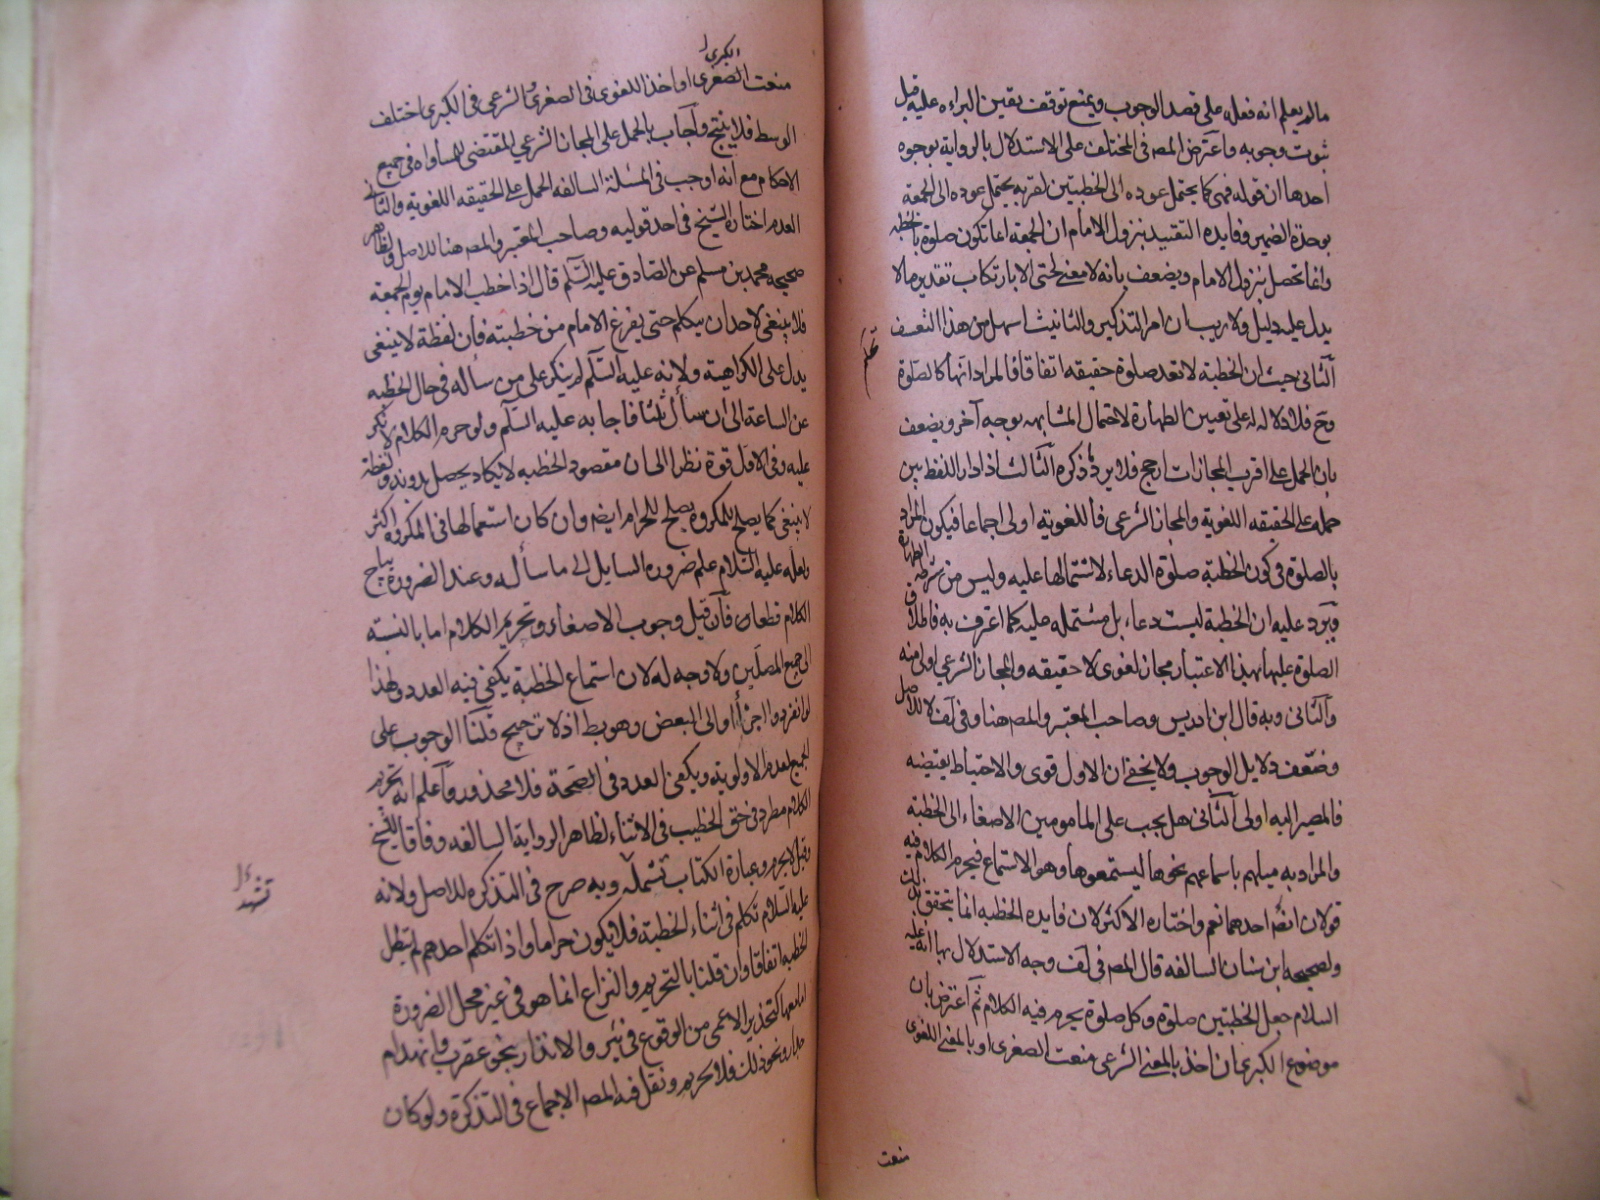 مالم يعلم انه فعله على قصد الوجوب ويمنع توقف يقين البراءه عليه قبل
ثبوت وجوبه واعترض المصه فى المختلف على الاستدلال بالرواية بوجوه
احدها ان قوله فهى كما يحتمل عوده الى الخطبتين لقربه يحتمل عوده الى الجمعة
بوحدة الضمير وفايده التقييد بنزول الامام ان الجمعة انما تكون صلوة بالخطبه
وانما تحصل بنزول الامام ويضعف بانه لا معنى لحتى الا بارتكاب تقدير مالا
يدل عليه دليل ولا ريب ان امر التذكير والتانيث اسهل من هذا التعسف
الثانى حيث ان الخطبة لا تعد صلوة حقيقه اتفاقا فالمراد انها كالصلوة
وح فلا دلاله له على تعيين الطهارة لاحتمال المشابهه بوجه آخر ويضعف
بان الحمل على اقرب المجازات ارجح فلا يرد ما ذكره الثالث اذا دار اللفظ بين
حمله على الحقيقه اللغوية والمجاز الشرعى فاللغوية اولى اجماعا فيكون المراد
بالصلوة فى كون الخطبة صلوة الدعاء لاشتمالها عليه وليس من شرطه الطهارة
ويرد عليه ان الخطبة ليست دعاء بل مشتمله عليه كما اعترف به فاطلاق
الصلوة عليها بهذا الاعتبار مجاز لغوى لا حقيقه والمجاز الشرعى اولى منه
والثانى وبه قال ابن ادريس وصاحب المعتبر والمصه هنا وفى لف للاصل
وضعف دلايل الوجوب ولا يخفى ان الاول قوى والاحتياط يقتضيه
فالمصير اليه اولى الثانى هل يجب على المامومين الاصغاء الى الخطبة
والمراد به ميلهم باسماعهم نحوها ليستمعوها وهو الاستماع فيحرم الكلام فيه
قولان احدهما نعم واختاره الاكثر لان فايده الخطبه انما تتحقق بذلك
ولصحيحه ابن سنان السالفه قال المصه فى لف وجه الاستدلال بها انه عليه
السلام جعل الخطبتين صلوة وكل صلوة يحرم فيه الكلام ثم اعترض بان
موضوع الكبرى ان اخذ بالمعنى الشرعى منعت الصغرى او بالمعنى اللغوى
منعت
الكبرى
منعت الصغرى او اخذ اللغوى فى الصغرى والشرعى فى الكبرى اختلف
الوسط فلا ينتج واجاب بالحمل على المجاز الشرعى المقتضى للمساواه فى جميع
الاحكام مع انه اوجب فى المسئلة السالفه الحمل على الحقيقه اللغوية والثانى
العدم اختاره الشيخ فى احد قوليه وصاحب المعتبر والمصه هنا للاصل ولظاهر
صحيحه محمد بن مسلم عن الصادق عليه السلم قال اذا خطب الامام يوم الجمعة
فلا ينبغى لاحد ان يتكلم حتى يفرغ الامام من خطبته فان لفظة لا ينبغى
يدل على الكراهية ولانه عليه السلم لم ينكر على من ساله فى حال الخطبه
عن الساعة الى ان سأل ثلثا فاجابه عليه السلم ولو حرم الكلام لانكر
عليه وفى الاول قوة نظرا الى ان مقصود الخطبه لا يكاد يحصل بدونه ولفظة
لا ينبغى كما يصلح للمكروه يصلح للحرام ايضه وان كان استعمالها فى المكروه اكثر
ولعله عليه السلام علم ضرورة السايل الى ما سأله وعند الضرورة يباح
الكلام قطعا فان قيل وجوب الاصغاء وتحريم الكلام اما بالنسبة
الى جميع المصلين ولا وجه له لان استماع الخطبة يكفى فيه العدد ولهذا
لو انفردوا اجزأ او الى البعض وهو بط اذ لا ترجيح قلنا الوجوب على
الجميع لعدم الاولوية ويكفى العدد فى الصحة فلا محذور واعلم انه تحريم
الكلام مطرد فى حق الخطيب فى الاثناء لظاهر الرواية السالفه وفاقا للشيخ
وقيل لا يحرم وعبارة الكتاب تشمله وبه صرح فى التذكره للاصل ولانه
عليه السلام تكلم فى اثناء الخطبة فلا يكون حراما واذا تكلم احدهم لم تبطل
الخطبه اتفاقا وان قلنا بالتحريم والنزاع انما هو فى غير محل الضرورة
اما معها كتحذير الاعمى من الوقوع فى بئر والانذار بنحو عقرب وانهدام
جدار ونحو ذلك فلا تحريم ونقل فيه المصه الاجماع فى التذكرة ولو كان